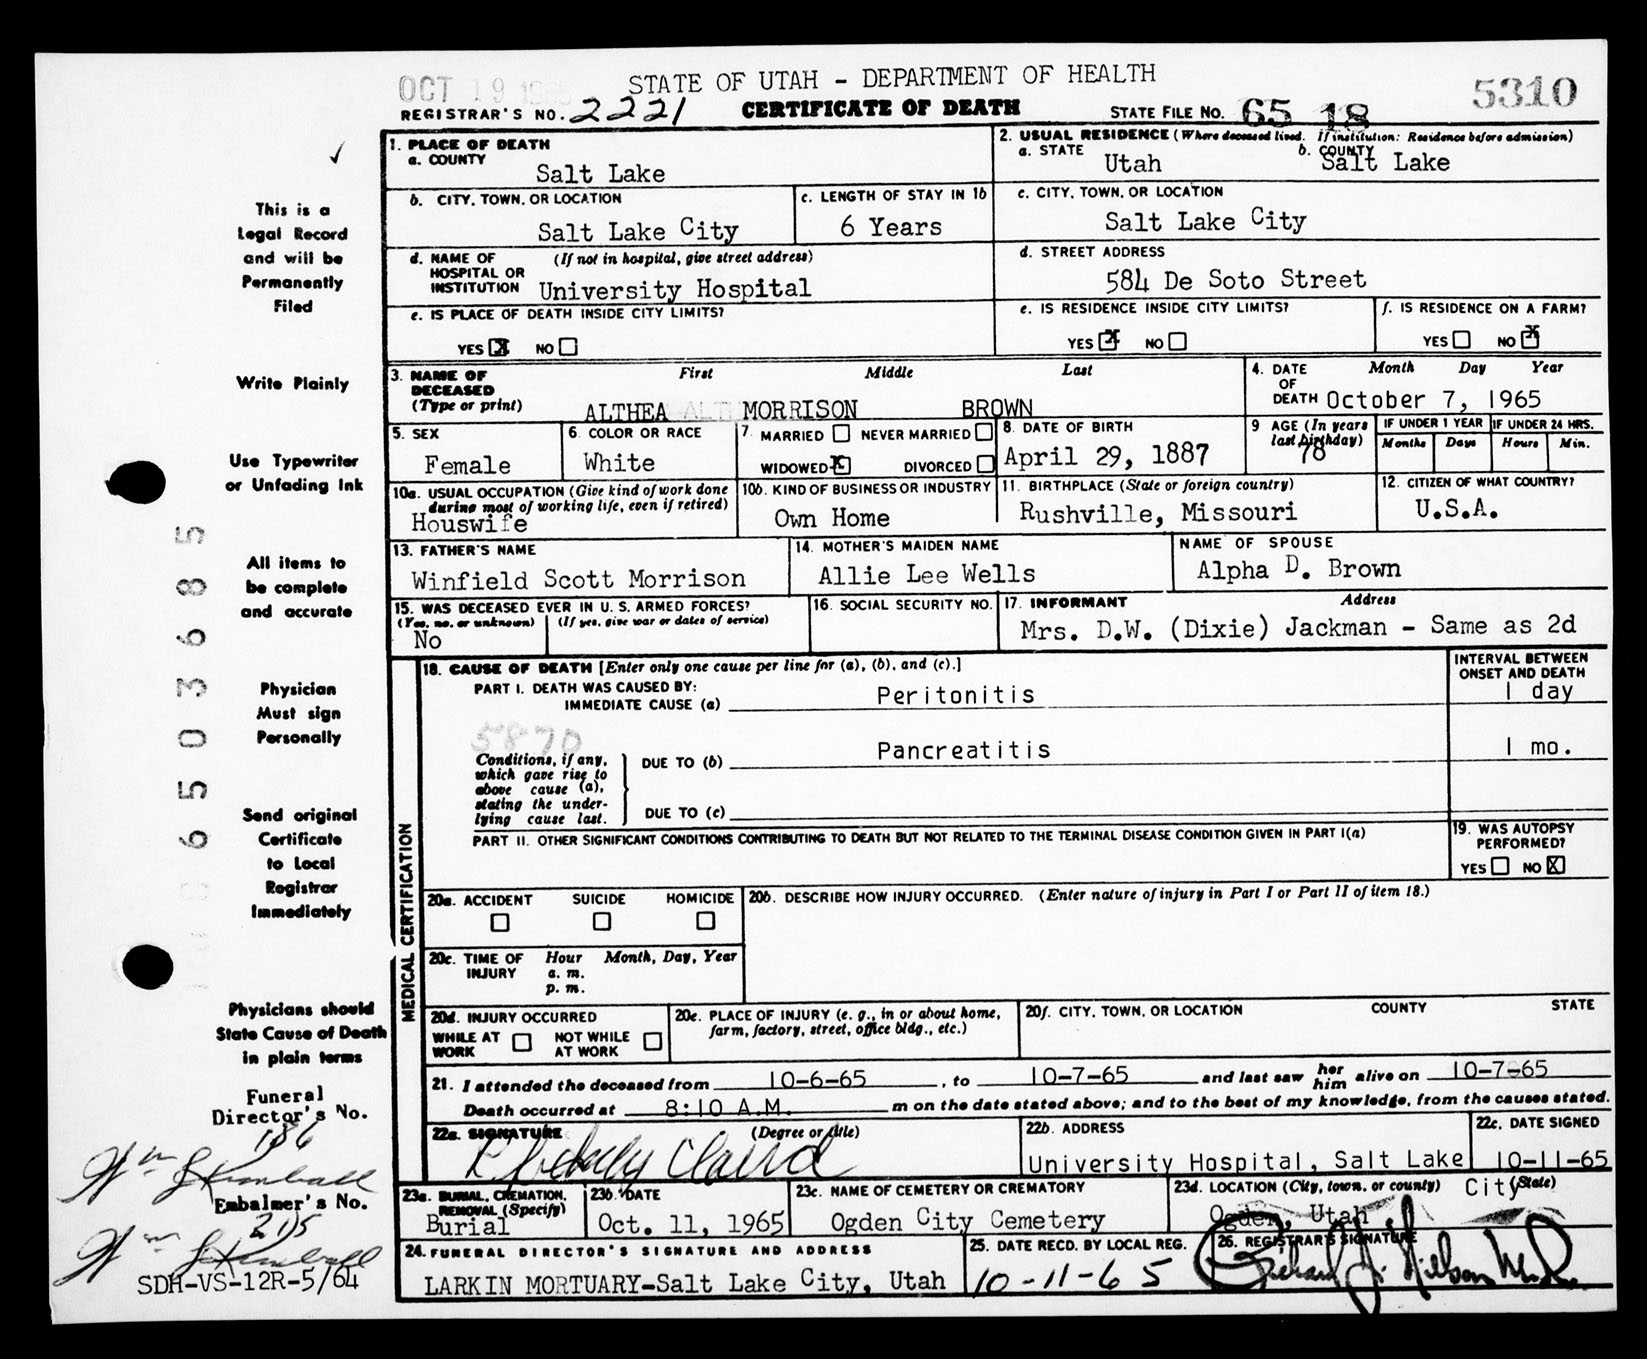 OCT 19
STATE OF UTAH - DEPARTMENT OF HEALTH
5310
REGISTRAR'S NO. 2221
CERTIFICATE OF DEATH
STATE FILE NO. 65 18
1. PLACE OF DEATH
a. COUNTY
Salt Lake
2. USUAL RESIDENCE (Where deceased lived. If institution: Residence before admission)
a. STATE Utah b. COUNTY Salt Lake
b. CITY, TOWN, OR LOCATION
Salt Lake City
c. LENGTH OF STAY IN 1b
6 Years
c. CITY, TOWN, OR LOCATION
Salt Lake City
d. NAME OF HOSPITAL OR INSTITUTION (If not in hospital, give street address)
University Hospital
d. STREET ADDRESS
584 De Soto Street
e. IS PLACE OF DEATH INSIDE CITY LIMITS?
YES X NO
e. IS RESIDENCE INSIDE CITY LIMITS?
YES X NO
f. IS RESIDENCE ON A FARM?
YES NO X
3. NAME OF DECEASED (Type or print)
First Middle Last
ALTHEA MORRISON BROWN
4. DATE OF DEATH Month Day Year
October 7, 1965
5. SEX
Female
6. COLOR OR RACE
White
7. MARRIED NEVER MARRIED
WIDOWED X DIVORCED
8. DATE OF BIRTH
April 29, 1887
9 AGE (In years last birthday)
78
IF UNDER 1 YEAR
Months Days
IF UNDER 24 HRS.
Hours Min.
10a. USUAL OCCUPATION (Give kind of work done during most of working life, even if retired)
Houswife
10b. KIND OF BUSINESS OR INDUSTRY
Own Home
11. BIRTHPLACE (State or foreign country)
Rushville, Missouri
12. CITIZEN OF WHAT COUNTRY?
U.S.A.
13. FATHER'S NAME
Winfield Scott Morrison
14. MOTHER'S MAIDEN NAME
Allie Lee Wells
NAME OF SPOUSE
Alpha D. Brown
15. WAS DECEASED EVER IN U. S. ARMED FORCES?
(Yes, no, or unknown) (If yes, give war or dates of service)
No
16. SOCIAL SECURITY NO.
17. INFORMANT Address
Mrs. D.W. (Dixie) Jackman - Same as 2d
MEDICAL CERTIFICATION
18. CAUSE OF DEATH [Enter only one cause per line for (a), (b), and (c).]
INTERVAL BETWEEN ONSET AND DEATH
PART I. DEATH WAS CAUSED BY:
IMMEDIATE CAUSE (a) Peritonitis 1 day
5870
Conditions, if any, which gave rise to above cause (a), stating the underlying cause last.
DUE TO (b) Pancreatitis 1 mo.
DUE TO (c)
PART II. OTHER SIGNIFICANT CONDITIONS CONTRIBUTING TO DEATH BUT NOT RELATED TO THE TERMINAL DISEASE CONDITION GIVEN IN PART I(a)
19. WAS AUTOPSY PERFORMED?
YES NO X
20a. ACCIDENT SUICIDE HOMICIDE
20b. DESCRIBE HOW INJURY OCCURRED. (Enter nature of injury in Part I or Part II of item 18.)
20c. TIME OF INJURY Hour Month, Day, Year
a. m.
p. m.
20d. INJURY OCCURRED
WHILE AT WORK NOT WHILE AT WORK
20e. PLACE OF INJURY (e. g., in or about home, farm, factory, street, office bldg., etc.)
20f. CITY, TOWN, OR LOCATION COUNTY STATE
21. I attended the deceased from 10-6-65, to 10-7-65 and last saw her him alive on 10-7-65
Death occurred at 8:10 A.M. m on the date stated above; and to the best of my knowledge, from the causes stated.
22a. SIGNATURE (Degree or title)
22b. ADDRESS
University Hospital, Salt Lake City
22c. DATE SIGNED
10-11-65
23a. BURIAL, CREMATION, REMOVAL (Specify)
Burial
23b. DATE
Oct. 11, 1965
23c. NAME OF CEMETERY OR CREMATORY
Ogden City Cemetery
23d. LOCATION (City, town, or county) (State)
Ogden, Utah
24. FUNERAL DIRECTOR'S SIGNATURE AND ADDRESS
LARKIN MORTUARY-Salt Lake City, Utah
25. DATE RECD. BY LOCAL REG.
10-11-65
26. REGISTRAR'S SIGNATURE
This is a
Legal Record
and will be
Permanently
Filed
Write Plainly
Use Typewriter
or Unfading Ink
All items to
be complete
and accurate
Physician
Must sign
Personally
Send original
Certificate
to Local
Registrar
Immediately
Physicians should
State Cause of Death
in plain terms
Funeral
Director's No.
186
Wm Kimball
Embalmer's No.
215
Wm Kimball
SDH-VS-12R-5/64
6503685